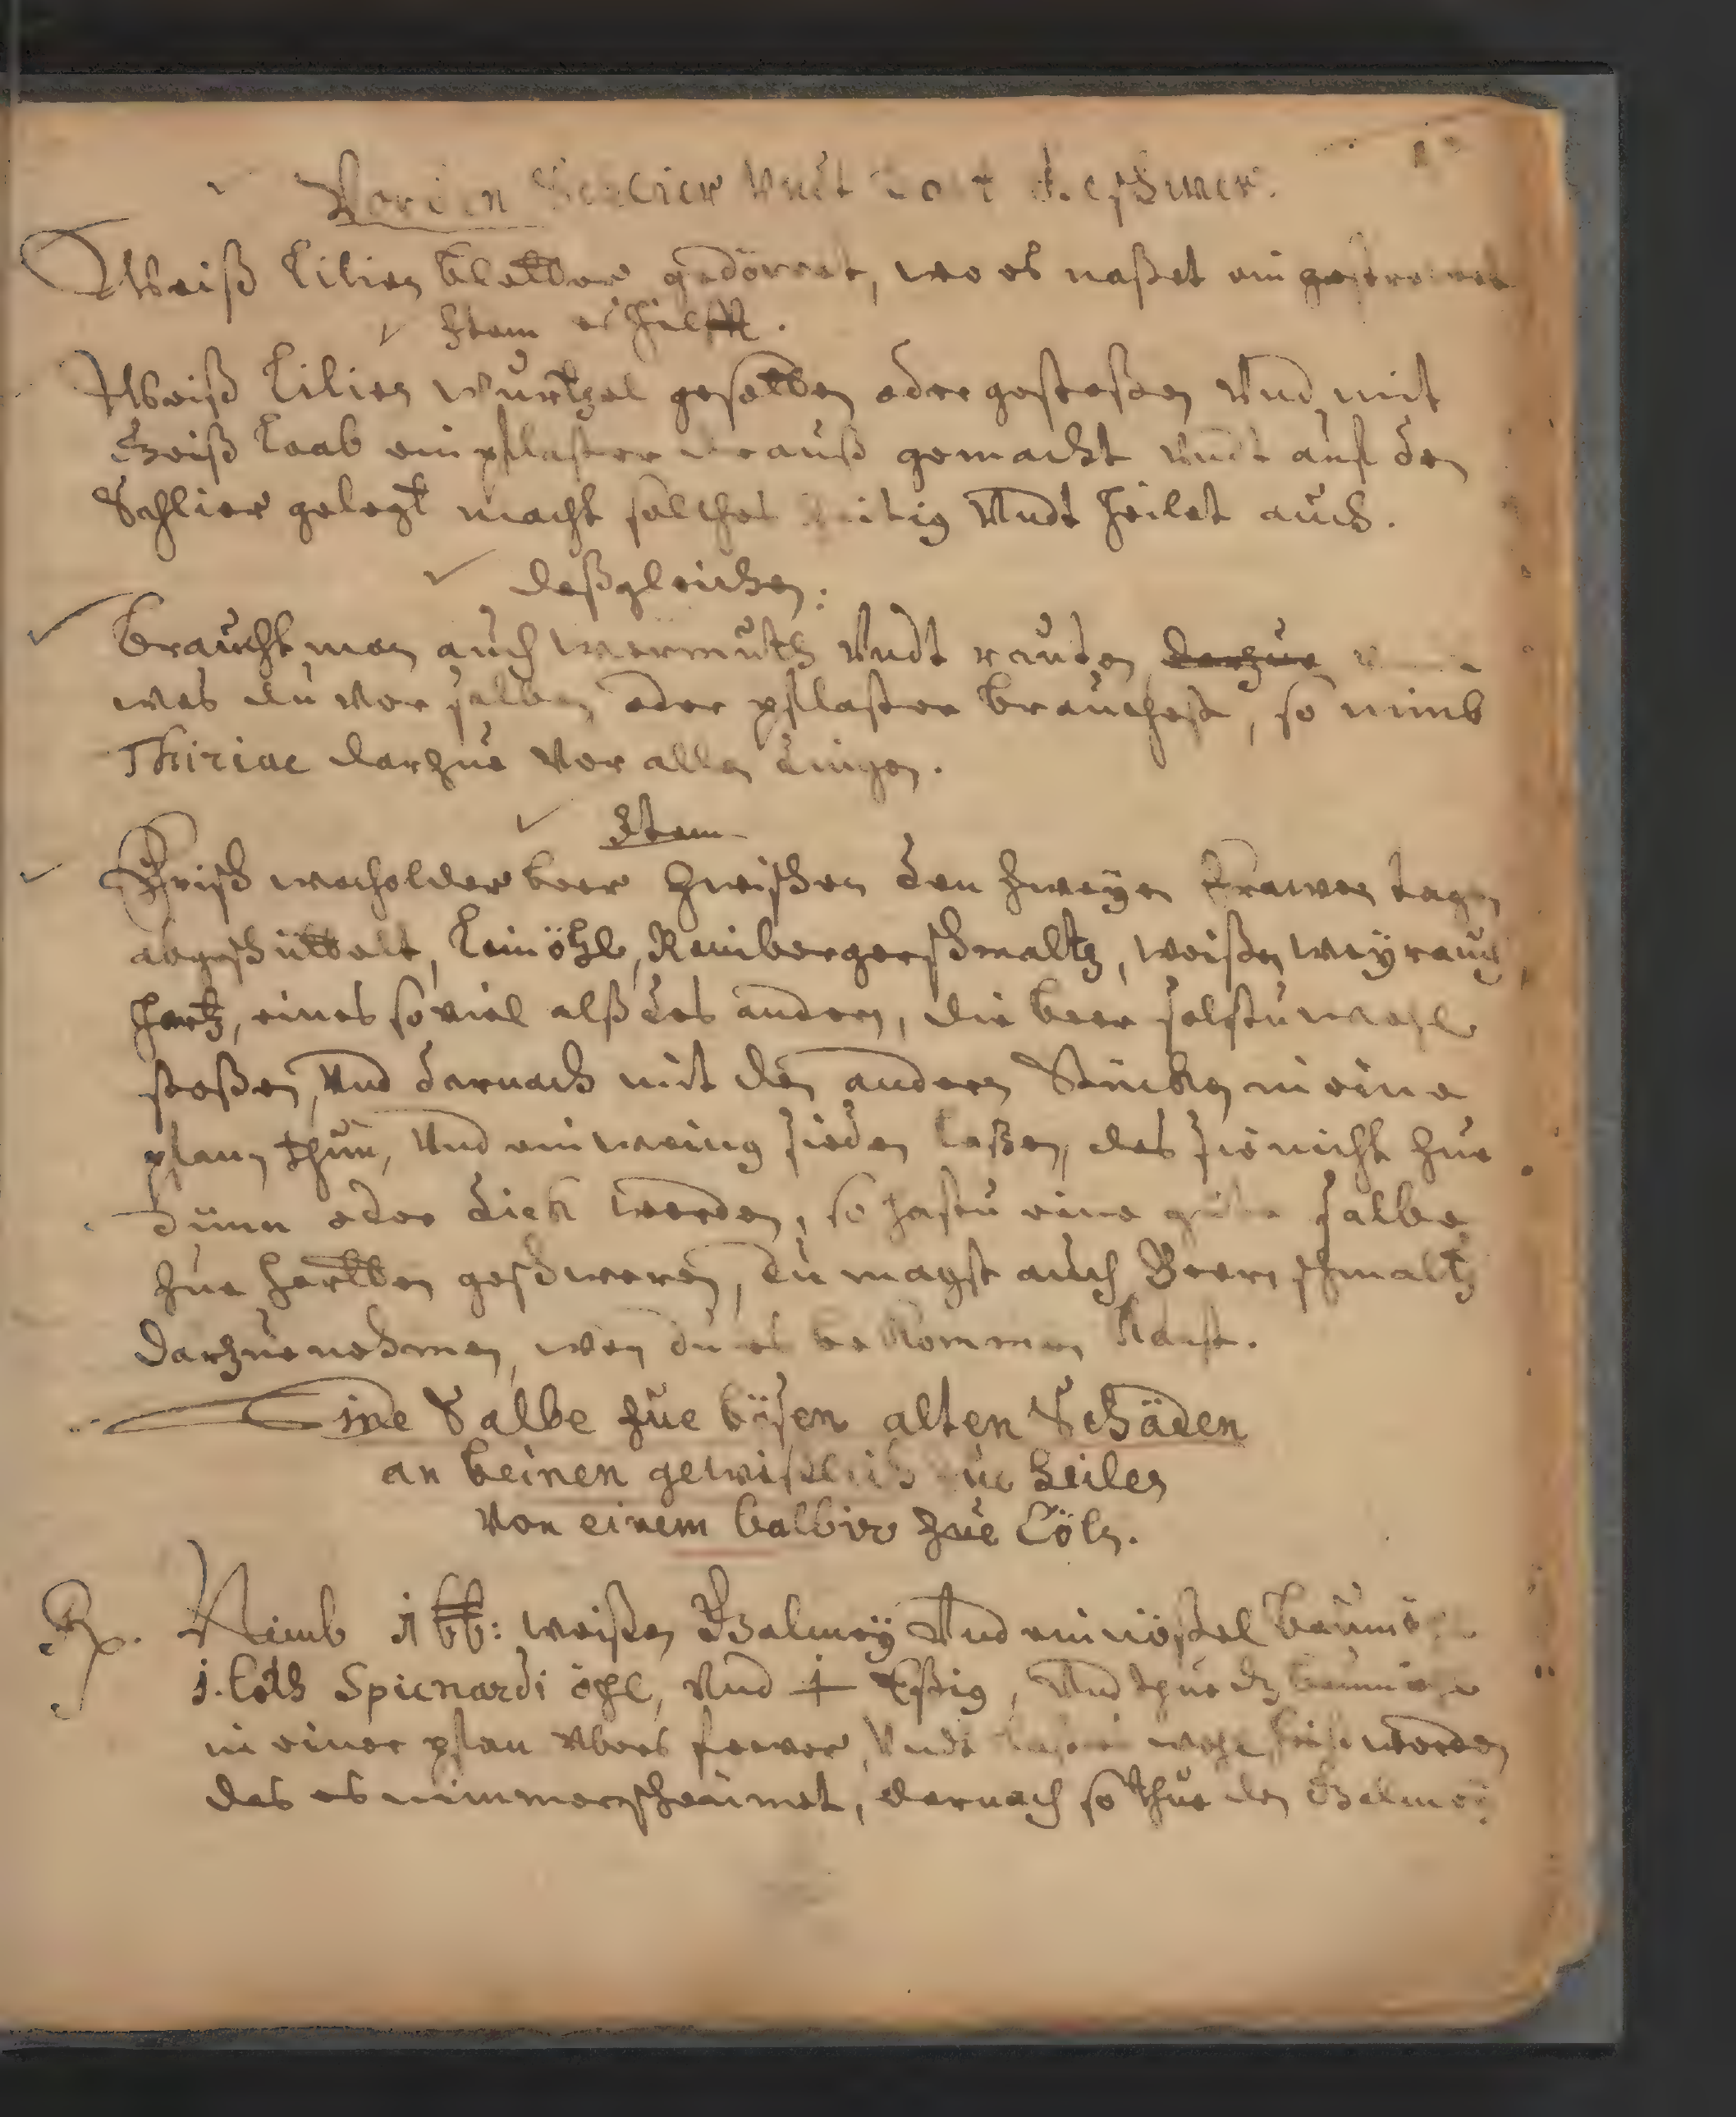 Vor den Schlier Vndt geschwer.
Weiß Lilien bletter gedörret, wo es naßet ein gestrewet
Item es hilfft.
Weiß Lilien wurtzel gesotten oder gestoßen Vnd mit
Geiß Laab ein pflaster drauß gemacht Vndt auf den
Schlier gelegt macht solches zeitig Vndt heilet auch.
Deßgleichen:
Braucht man auch wermuth Vndt rauten darzue
was du vor salben oder pflaster brauchest, so nimb
Thiriac darzue vor allen dingen.
Item
Frisch wacholder beer zwischen den zweyen frawen tagen
abgeschüttelt, Leinöhl, Reinbergerschmaltz, weißen weyrauch
hartz, eines soviel alß des andern, die beer solstu wohl
stoßen, Vnd darnach mit den andern Stücken in eine
pfann thun, Vnd ein wenig sieden laßen, das sie nicht zue
dünn oder dick werden, so hastu eine gute salbe
zue hartten geschweren, du magst auch Beern schmaltz
darzue nehmen, wen du es bekommen kanst.
Eine Salbe zue bösen alten Schäden
an beinen gewißlich zue heilen
Von einem balbier zue Cöln.
Rp. Nimb 1 lb: weißen Galmey Vnd ein nößel baumöhl
j. loth Spicnardi öhl, Vnd Eßig, Vnd thue dz baumöhl
in einer pfan vbers fewer, Vndt wohl heiß werden
das es nimmer scheümet, darnach so thue den Galmey